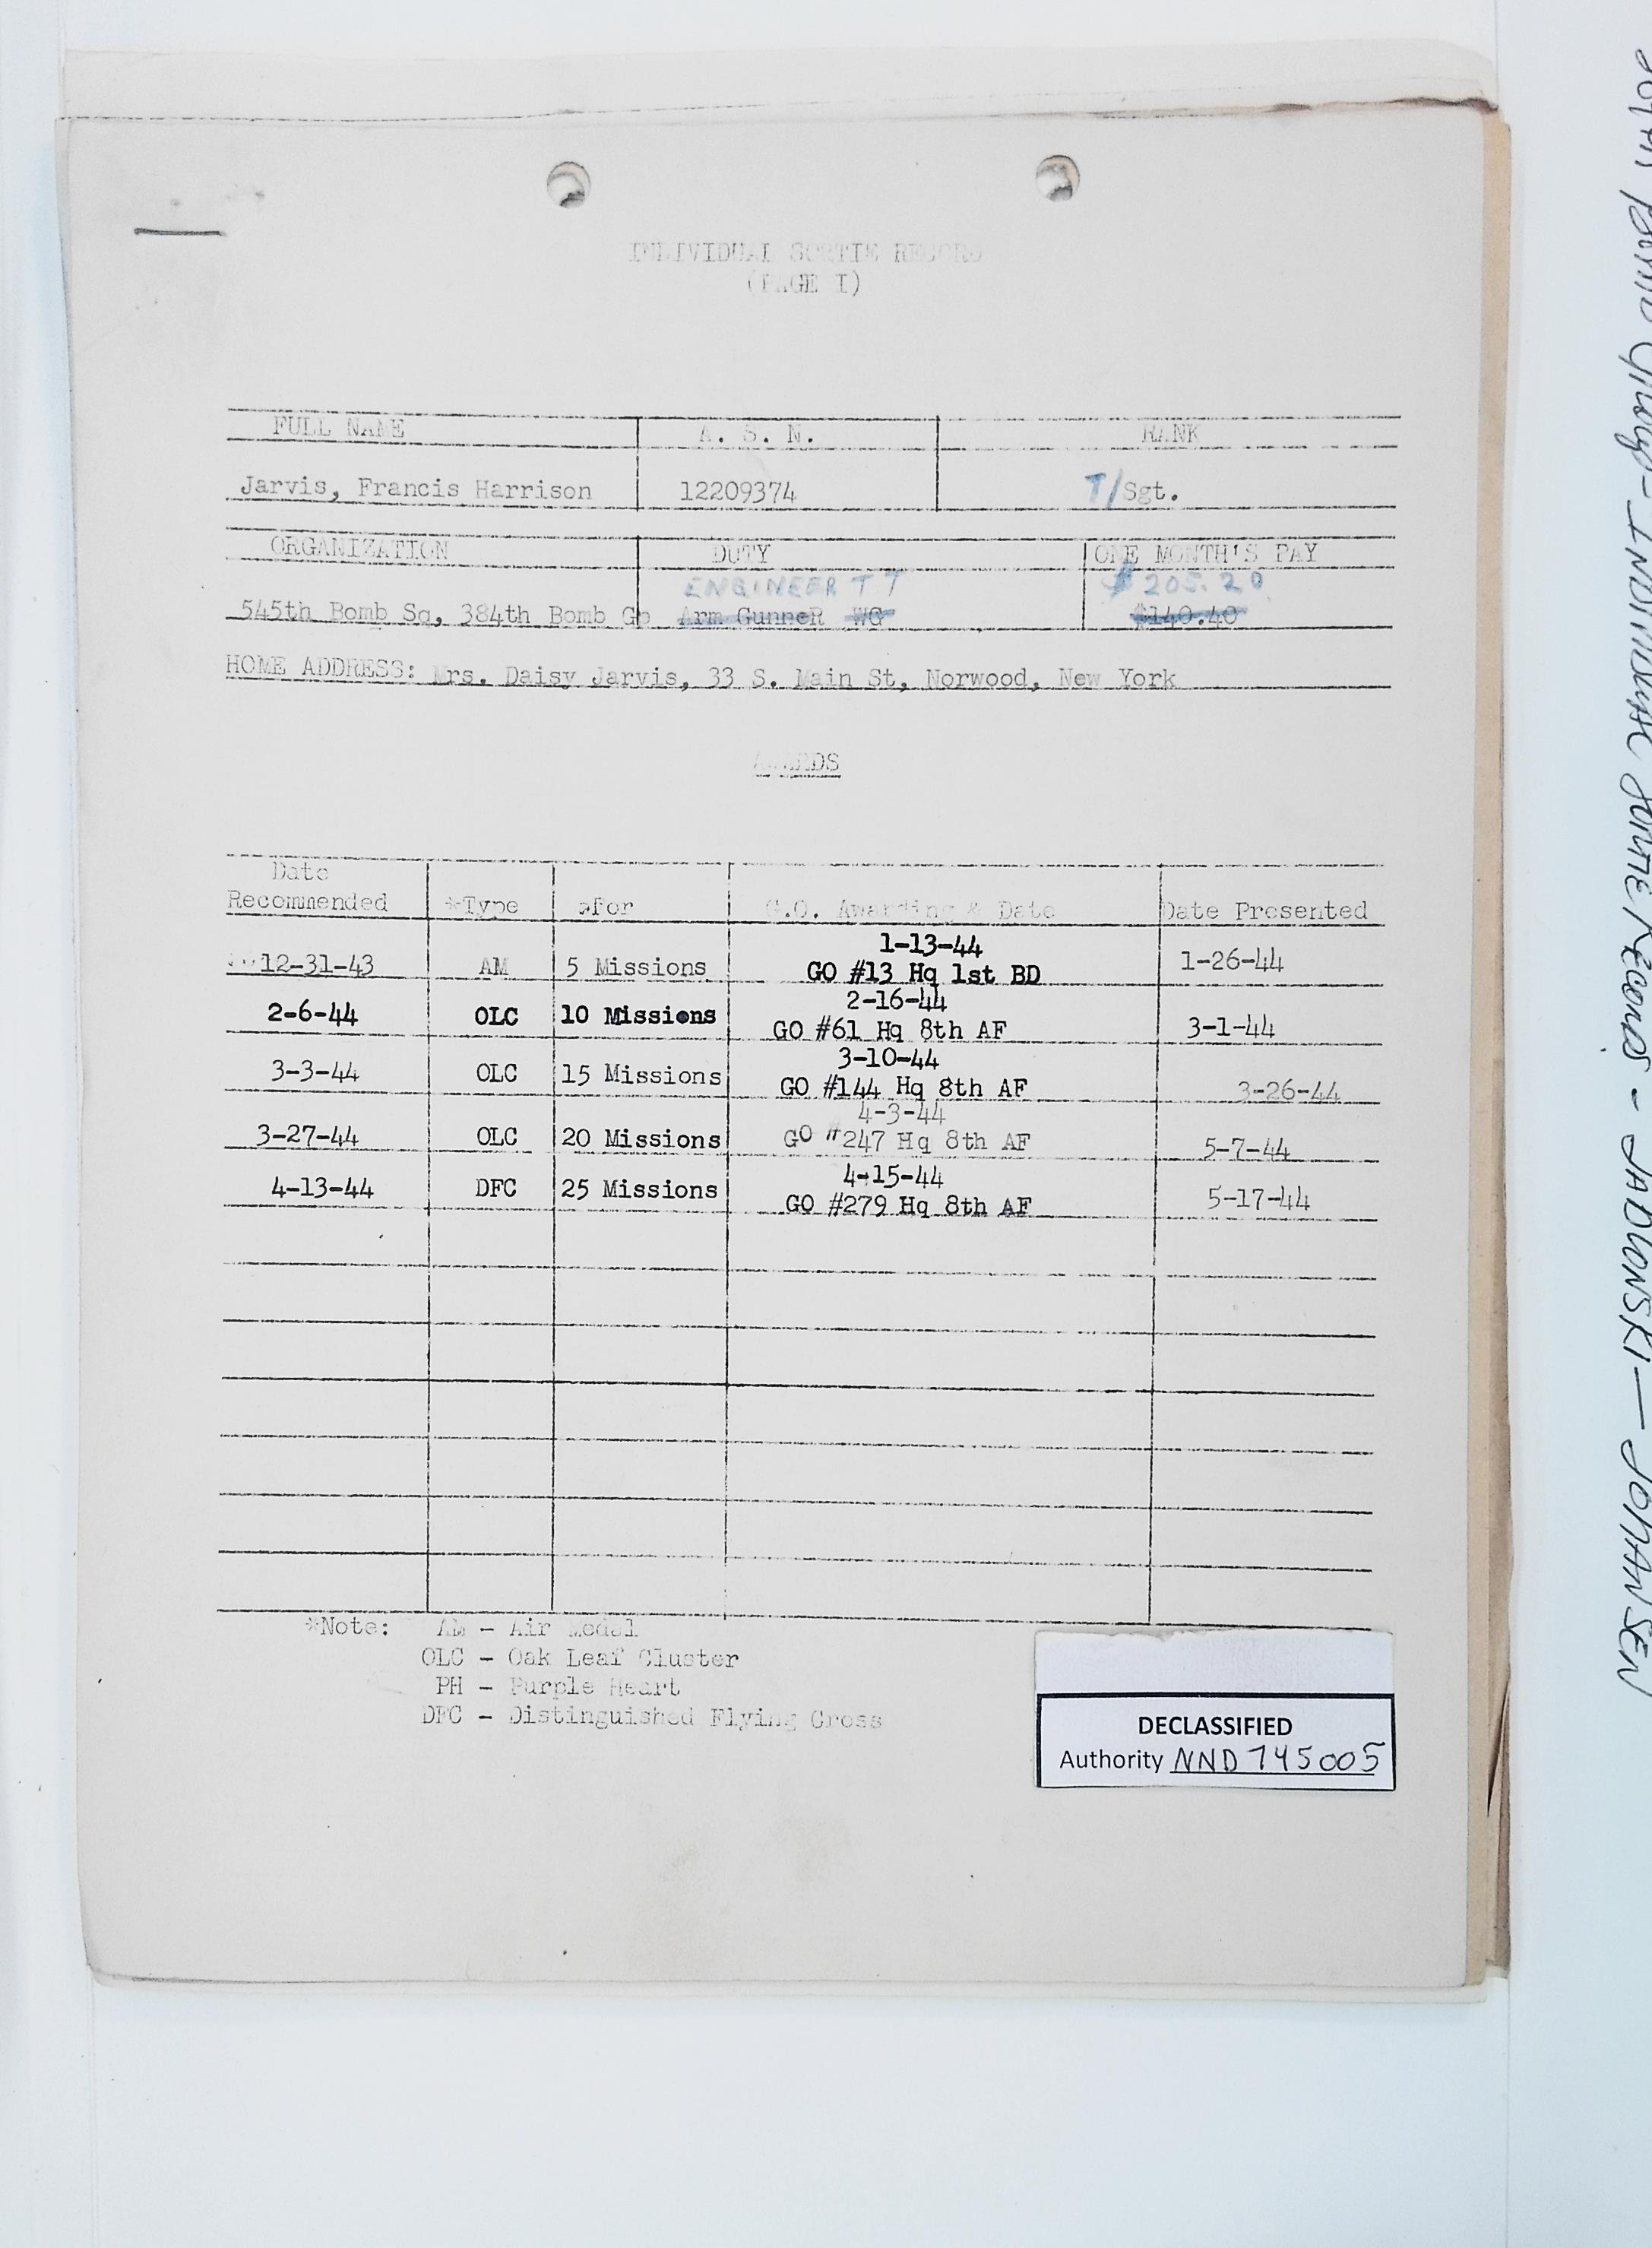 INDIVIDUAL SORTIE RECORD
(PAGE I)
FULL NAME A. S. N. RANK
Jarvis, Francis Harrison 12209374 T/Sgt.
ORGANIZATION DUTY ONE MONTH'S PAY
ENGINEER TT $205.20
545th Bomb Sq, 384th Bomb Gp Arm GunneR WG $140.40
HOME ADDRESS: Mrs. Daisy Jarvis, 33 S. Main St, Norwood, New York
AWARDS
Date
Recommended *Type *For G.O. Awarding & Date Date Presented
1-13-44
12-31-43 AM 5 Missions GO #13 Hq 1st BD 1-26-44
2-16-44
2-6-44 OLC 10 Missions GO #61 Hq 8th AF 3-1-44
3-10-44
3-3-44 OLC 15 Missions GO #144 Hq 8th AF 3-26-44
4-3-44
3-27-44 OLC 20 Missions GO #247 Hq 8th AF 5-7-44
4-15-44
4-13-44 DFC 25 Missions GO #279 Hq 8th AF 5-17-44
*Note: AM - Air Medal
OLC - Oak Leaf Cluster
PH - Purple Heart
DFC - Distinguished Flying Cross
DECLASSIFIED
Authority NND 745005
BOMB GROUP - INDIVIDUAL SORTIE RECORDS - JADWONSKI - JOHANSEN